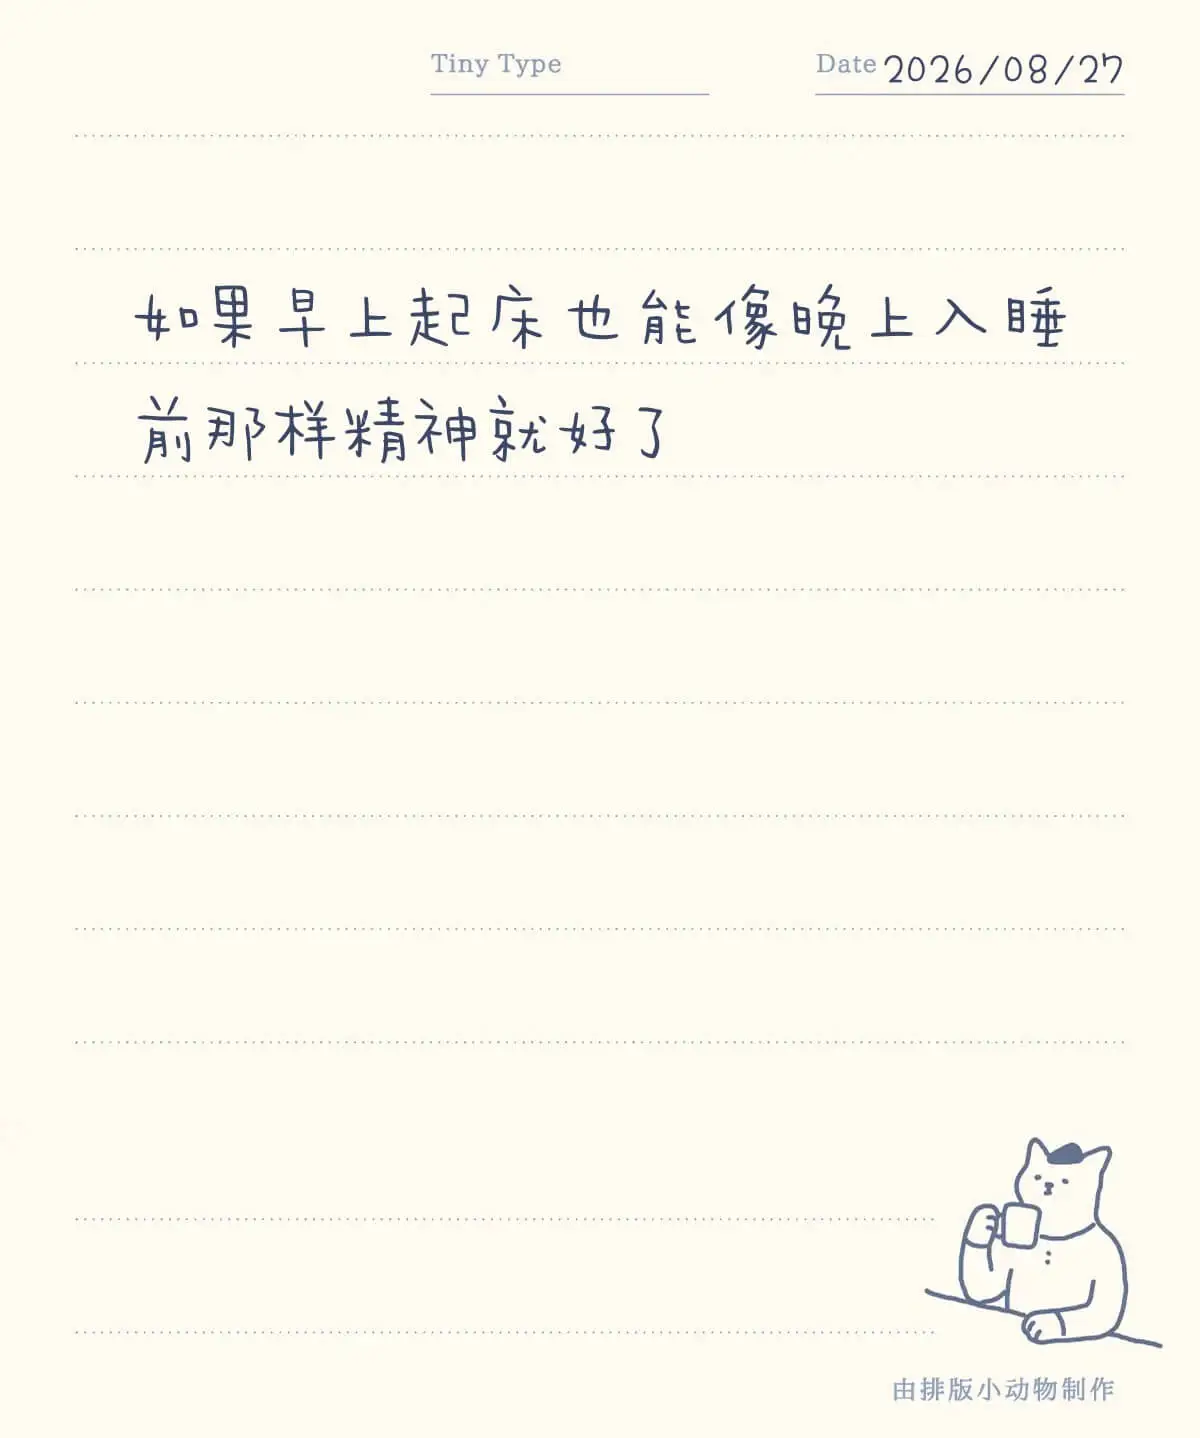 Tiny Type
Date 2026/08/27
如果早上起床也能像晚上入睡
前那样精神就好了
由排版小动物制作